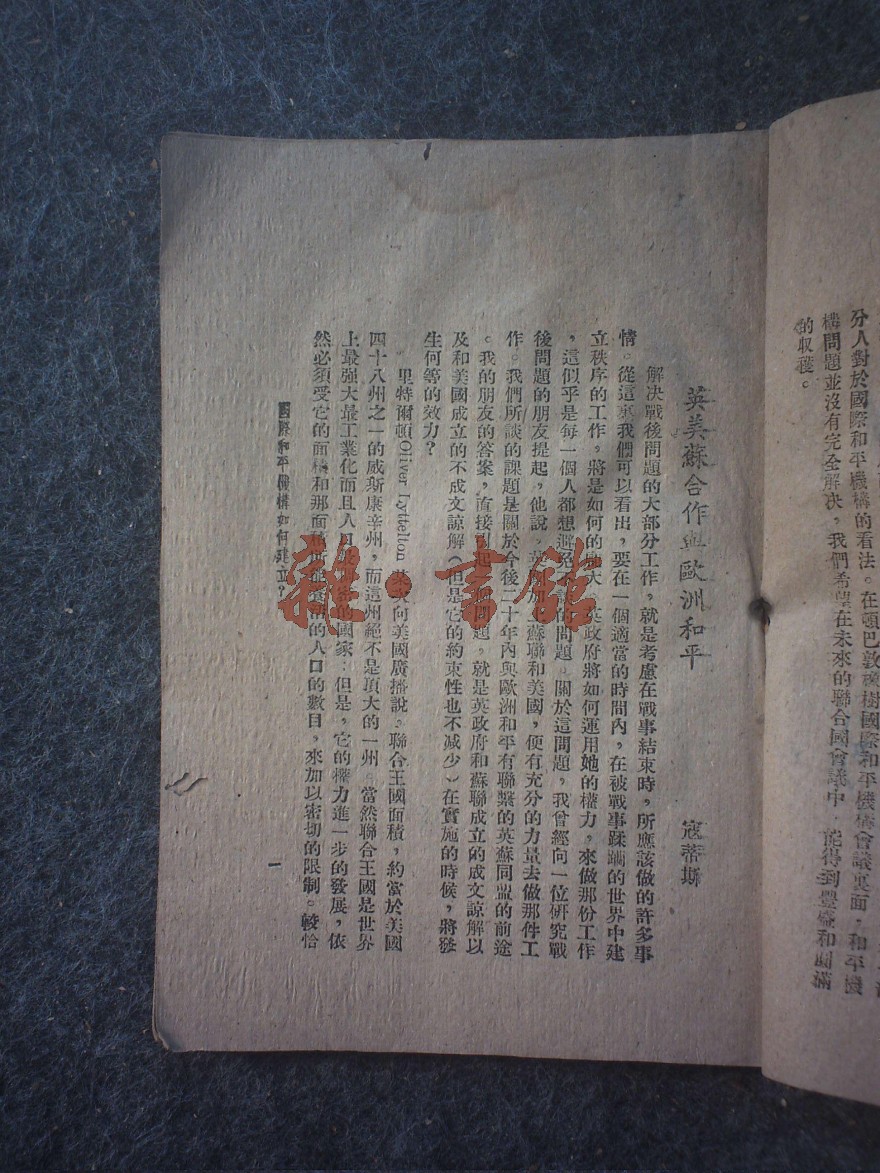 分人對於國際和平機構的看法。在頓巴敦橡樹國際和平機構會議裏面,和平機
構問題並沒有完全解決,我們希望在未來的聯合國會議中,能得到豐盛和圓滿
的收穫。
英美蘇合作與歐洲和平
寇蒂斯
解決戰後問題的大部分工作,就是考慮在戰事結束時,所應該做的許多事
情。從這裏我們可以看出,要在一個適當的時間內,在被戰事蹂躪的世界中建
立秩序的工作,將是如何的龐大。英政府將如何運用她的權力,來做那份工作
,這似乎是每一個人都想避免不談的問題。關於這問題,我曾經向一位研究戰
後問題的朋友提起,他說,英國加上蘇聯和美國,便有充分的力量去做那件工
作。我們所談的課題是關於今後二十年內與歐洲和平有聯繫的英蘇同盟的前途
。我的朋友的答案,直接引起問題,就是英政府和蘇聯成立的成文諒解以
及和美國成立的不成文諒解(但是它的約束性也不減少)在實施的時候,將發
生何等的效力?
里特爾頓Oliver Lyttelton 某次向美國廣播說。聯合王國面積,約當於美國
四十八州之一的威斯康辛州,而這州絕不是頂大的一州。當然聯合王國是世界
上最强大最工業化而且人口最密的國家:但是,它的權力進一步的發展,依
然必須受它的面積和那面積所能養活的人口的數目,來加以密切的限制。較恰
國際和平機構如何建立?
一
雜·書館